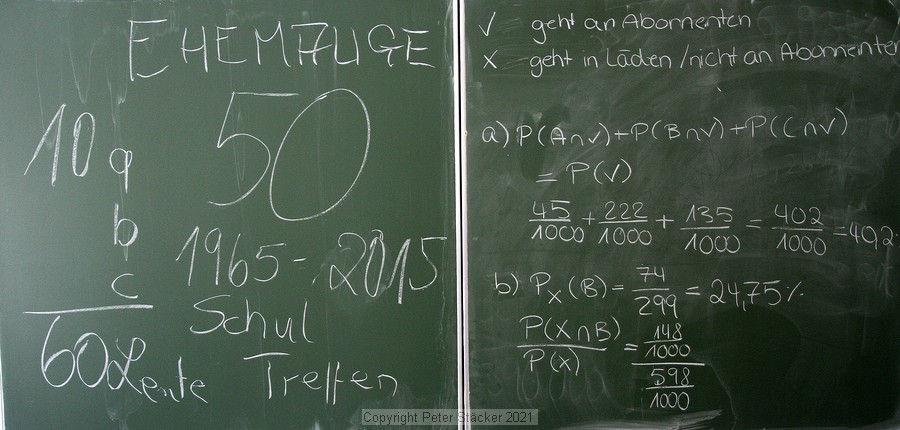 EHEMALIGE
10 a
b
c
50
1965-2015
60 Leute
Schul
Treffen
✓ geht an Abonnenten
x geht in Läden / nicht an Abonnenten
a) P(A∩✓)+P(B∩✓)+P(C∩✓)
= P(✓)
45/1000 + 222/1000 + 135/1000 = 402/1000 = 40,2
b) Pₓ(B) = 74/299 = 24,75%
P(X∩B)/P(X) = (148/1000)/(598/1000)
Copyright Peter Stäcker 2021